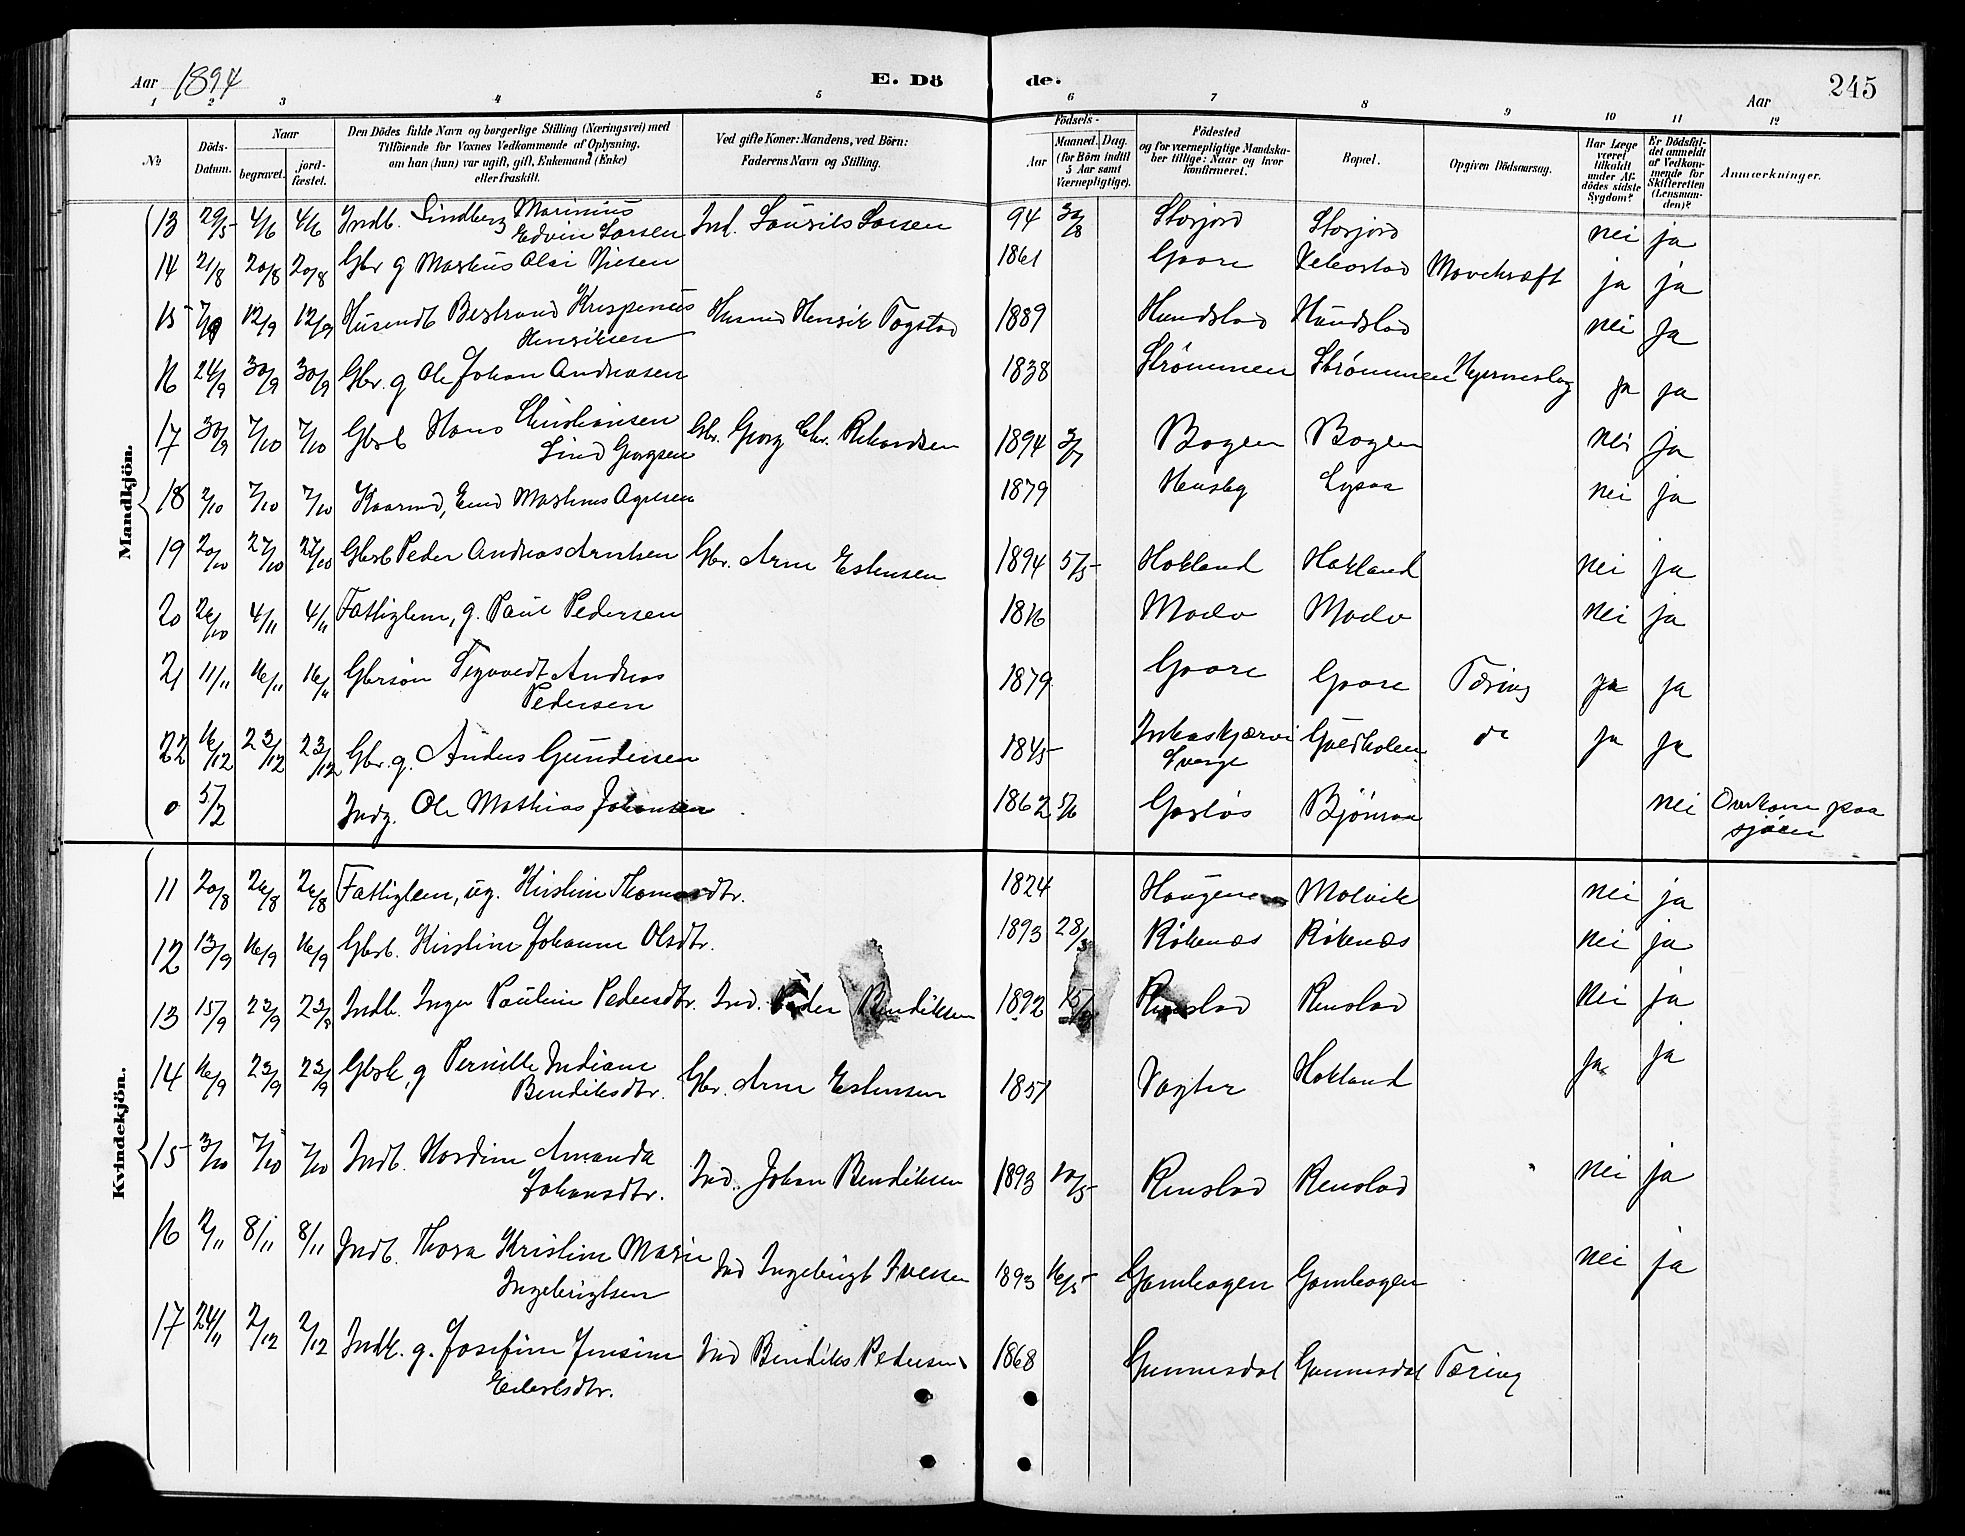 Aar 1894 E. Dö de. Aar 245
1 2 3 4 5 6 7 8 9 10 11 12
No
Döds-Datum.
Naar begravet. jord-fæstet.
Den Dödes fulde Navn og borgerlige Stilling (Næringsvei) med
Tilföiende for Voxnes Vedkommende af Oplysning,
om han (hun) var ugift, gift, Enkemand (Enke)
eller fraskilt.
Ved gifte Koner: Mandens, ved Börn:
Faderens Navn og Stilling.
Födsels-
Aar Maaned. Dag.
(for Börn indtil
5 Aar samt
Værnepligtige).
Födested
og for værnepligtige Mandska-
ber tillige: Naar og hvor
konfirmeret.
Bopæl.
Opgiven Dödsaarsag.
Har Læge
været
tilkaldt
under Af-
dödes sidste
Sygdom?
Er Dödsfal-
det anmeldt
af Vedkom-
mende for
Skifteretten
(Lensman-
den)?
Anmærkninger.
Mandkjön.
13 29/5 4/6 4/6 Indb. Lindberg Marinius Edvin Larsen Ind. Laurits Larsen 94 Storjord Storjord nei ja
14 21/8 20/8 20/8 Gbr g Markus Olai 1861 Gaare Mavekræft ja ja
15 12/9 12/9 Bertrand Krispinus Henriksen Husmd Henrik Togstad 1889 Hundstad Hundstad nei ja
16 24/9 30/9 30/9 Gbr. g Ole Johan Andreasen 1838 Strømmen Strømmen Hjerneslag ja ja
17 30/9 7/10 7/10 Gbrb Hans Christiansen Lind Georgsen Gbr. Georg Chr. Rikardsen 1894 3/7 Bogen Bogen nei ja
18 2/10 7/10 7/10 Martinus 1879 Lysaa nei ja
19 20/10 27/10 27/10 Gbrb Peder Andreas Arntsen Gbr. Arnt Estensen 1894 5/5 Hokland Hokland nei ja
20 26/10 4/11 4/11 Fattiglem, g. Paul Pedersen 1816 nei ja
21 11/11 16/11 16/11 Gbrsön Sigvardt Andreas Pedersen 1879 Gaare Gaare Tæring ja ja
22 16/12 23/12 23/12 Gbr. g. Anders Gundersen 1845 Sverge ja ja
0 5/2 Indg. Ole Mathias Johansen 1862 5/6 nei Omkom paa sjøen
Kvindekjön.
11 20/8 26/8 26/8 Fattiglem, ug. Kirstine Thomasdtr. 1824 Molvik nei ja
12 13/9 16/9 16/9 Gbrb. Kirstine Johanne Olsdtr. 1893 28/3 Røkenæs Røkenæs nei ja
13 15/9 23/9 23/9 Indb. Inger Pauline Pedersdtr. Ind. Peder Bendiksen 1892 Renslad Renslad nei ja
14 16/9 23/9 23/9 Gbrk, g Pernille Indiane Bendiksdtr. Gbr. Arnt Estensen 1851 Hokland ja ja
15 3/10 7/10 7/10 Indb. Hardine Amanda Johansdtr. Ind. Johan Bendiksen 1893 10/5 Renslad Renslad nei ja
16 2/11 8/11 8/11 Indb. Thora Kristine Marie Ingebrigtsen Ind Ingebrigt Iversen 1893 16/5 nei ja
17 24/11 2/12 2/12 Indk. g. Josefine Jensine Edertsdtr. Ind Bendiks Pedersen 1868 Gunnesdal Gunnesdal Tæring